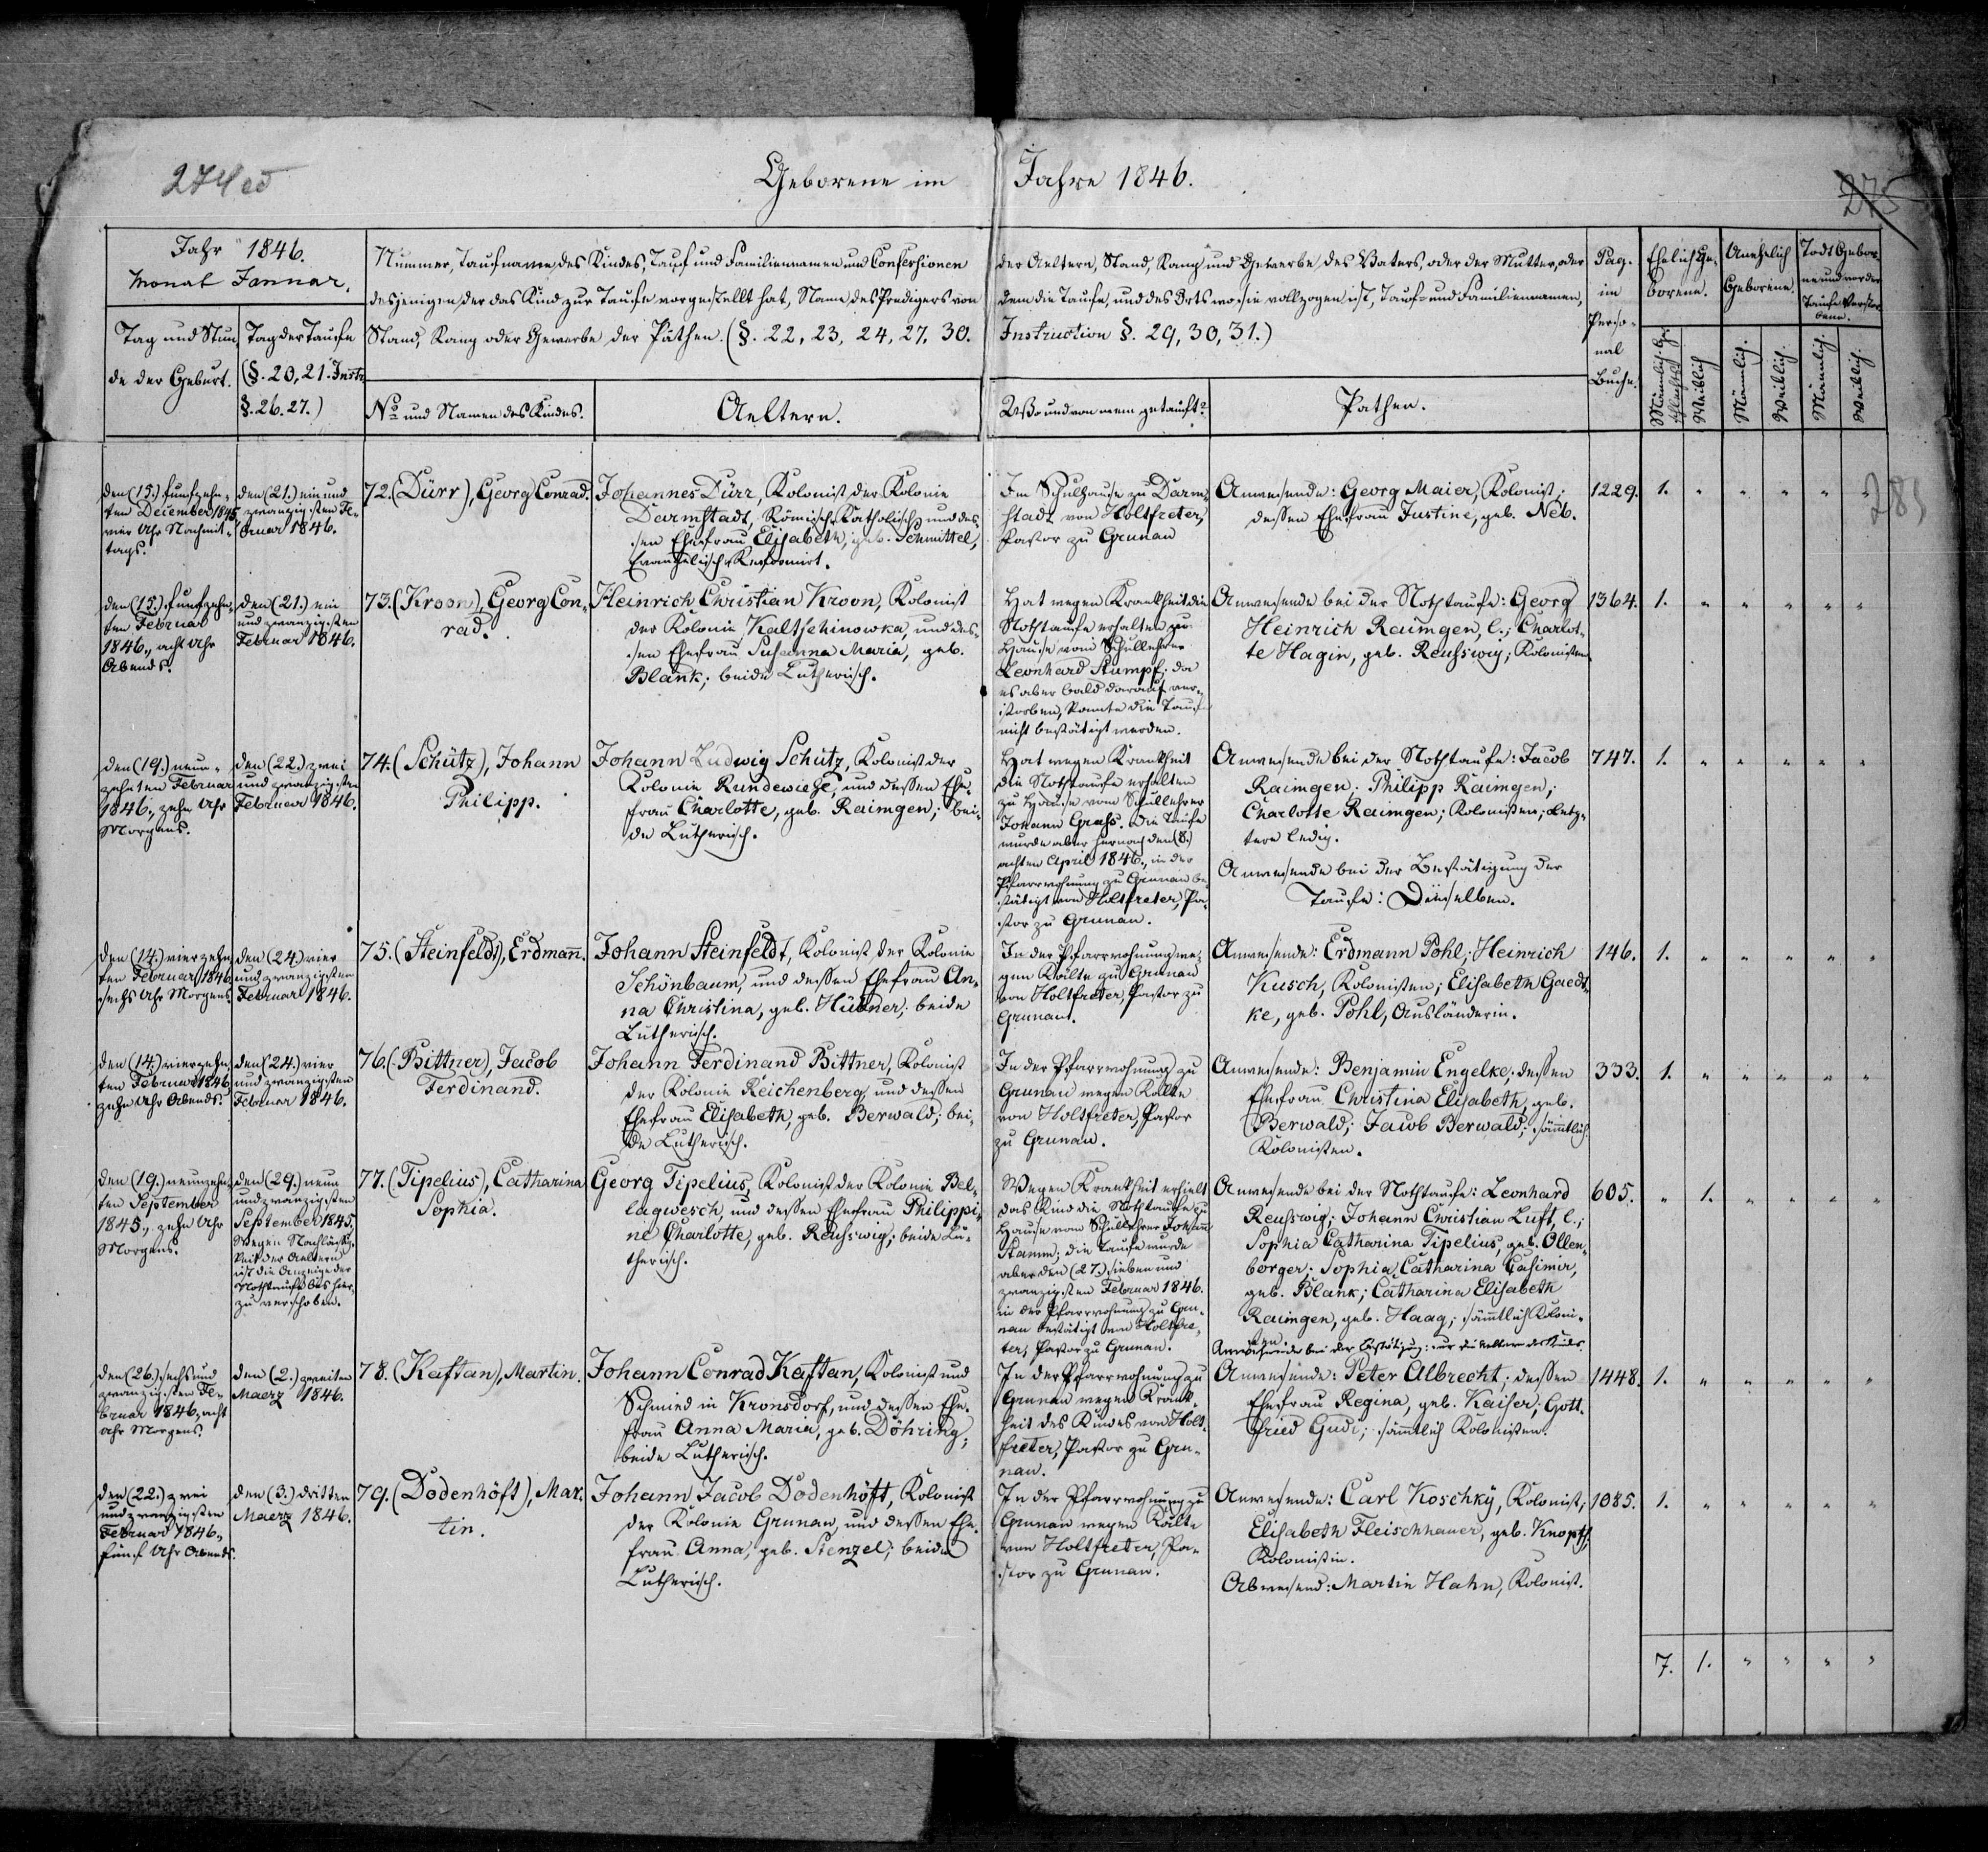 Geborene im Jahre 1846.
275
Jahr 1846.
Monat Januar.
Tag und Stun
de der Geburt.
Tag der Taufe
(§. 20, 21. Instr.
§. 26. 27.)
Nummer, Taufname des Kindes, Tauf und Familiennamen und Confessionen
desjenigen der das Kind zur Taufe vorgestellt hat, Name des Predigers von
Stand, Rang oder Gewerbe der Pathen. (§. 22, 23, 24, 27, 30.
No und Namen des Kindes.
Aeltern.
der Aeltern, Stand, Rang und Gewerbe des Vaters, oder der Mutter, oder
dem die Taufe, und des Orts wo sie vollzogen ist, Tauf- und Familiennamen,
Instruction §. 29, 30, 31.)
Wo und von wem getauft?
Pathen.
Pag.
im
Perso-
nal
Buche.
Ehelich Ge-
borene.
Unehelich
Geborene
Todt Gebor
ne und vor der
Taufe Verstor
bene.
Männlich. Ge-
schlechts
Weiblich
Männlich.
Weiblich.
Männlich.
Weiblich.
den (15.) funfzehn-
ten December 1845,
vier Uhr Nachmit-
tags.
den (21.) ein und
zwanzigsten Fe-
bruar 1846.
72. (Dürr), Georg Conrad.
Johannes Dürr, Kolonist der Kolonie
Darmstadt, Römisch-Katholisch, und des-
sen Ehefrau Elisabeth, geb. Schmittel,
Evangelisch-Reformirt.
Im Schulhause zu Darm-
stadt von Holtfreter,
Pastor zu Grunau
Anwesende: Georg Maier, Kolonist;
dessen Ehefrau Justine, geb. Neb.
1229. 1. " " " " "
den (15.) funfzehn-
ten Februar
1846., acht Uhr
Abends.
den (21.) ein
und zwanzigsten
Februar 1846.
73. (Kroon), Georg Con-
rad.
Heinrich Christian Kroon, Kolonist
der Kolonie Kaltschinowka, und des-
sen Ehefrau Susanna Maria, geb.
Blank; beide Lutherisch.
Hat wegen Krankheit die
Nothtaufe erhalten zu
Hause vom Schullehrer
Leonhard Stumpf; da
es aber bald darauf ver-
storben, konnte die Taufe
nicht bestätigt werden.
Anwesende bei der Nothtaufe: Georg
Heinrich Raimgen, l.; Charlot-
te Hagin, geb. Reusswig; Kolonisten
1364. 1. " " " " "
den (19.) neun-
zehnten Februar
1846., zehn Uhr
Morgens.
den (22.) zwei
und zwanzigsten
Februar 1846.
74. (Schütz), Johann
Philipp.
Johann Ludwig Schütz, Kolonist der
Kolonie Rundewiese, und dessen Ehe-
frau Charlotte, geb. Raimgen; bei-
de Lutherisch.
Hat wegen Krankheit
die Nothtaufe erhalten
zu Hause vom Schullehrer
Johann Grass. Die Taufe
wurde aber hernach den (8.)
achten April 1846., in der
Pfarrwohnung zu Grunau be-
stätigt von Holtfreter, Pa-
stor zu Grunau.
Anwesende bei der Nothtaufe: Jacob
Raimgen; Philipp Raimgen;
Charlotte Raimgen; Kolonisten; Letz-
tere ledig.
Anwesende bei der Bestätigung der
Taufe: Dieselben.
747. 1. " " " " "
den (14.) vierzehn-
ten Februar 1846
sechs Uhr Morgens
den (24.) vier
und zwanzigsten
Februar 1846.
75. (Steinfeldt), Erdmañ.
Johann Steinfeldt, Kolonist der Kolonie
Schönbaum, und dessen Ehefrau An-
na Christina, geb. Hübner; beide
Lutherisch.
In der Pfarrwohnung we-
gen Kälte zu Grunau
von Holtfreter, Pastor zu
Grunau.
Anwesende: Erdmann Pohl; Heinrich
Kusch, Kolonisten; Elisabeth Gaedt-
ke, geb. Pohl, Ausländerin.
146. 1. " " " " "
den (14.) vierzehn
ten Februar 1846
zehn Uhr Abends.
den (24.) vier
und zwanzigsten
Februar 1846.
76. (Bittner), Jacob
Ferdinand.
Johann Ferdinand Bittner, Kolonist
der Kolonie Reichenberg, und dessen
Ehefrau Elisabeth, geb. Berwald; bei-
de Lutherisch.
In der Pfarrwohnung zu
Grunau wegen Kälte
von Holtfreter, Pastor
zu Grunau.
Anwesende: Benjamin Engelke; dessen
Ehefrau Christina Elisabeth, geb.
Berwald; Jacob Berwald; sämtlich
Kolonisten.
333. 1. " " " " "
den (19.) neunzehn-
ten September
1845., zehn Uhr
Morgens.
den (29.) neun
und zwanzigsten
September 1845.
Wegen Nachlässig-
keit der Aeltern
ist die Anzeige der
Nothtaufe bis hier-
zu verschoben.
77. (Tipelius), Catharina
Sophia.
Georg Tipelius, Kolonist der Kolonie Bel-
lagwesch, und dessen Ehefrau Philippi-
ne Charlotte, geb. Reusswig; beide Lu-
therisch.
Wegen Krankheit erhielt
das Kind die Nothtaufe zu
Hause vom Schullehrer Johann
Stamm; die Taufe wurde
aber den (27.) sieben und
zwanzigsten Februar 1846.
in der Pfarrwohnung zu Gru-
nau bestätigt von Holtfre-
ter, Pastor zu Grunau.
Anwesende bei der Nothtaufe: Leonhard
Reusswig; Johann Christian Luft, l.;
Sophia Catharina Tipelius, geb. Ollen-
börger; Sophia Catharina Casimir,
geb. Blank; Catharina Elisabeth
Raimgen, geb. Haag; sämtlich Koloni-
sten.
Anwesende bei der Bestätigung: nur die Aeltern des Kindes
605. " 1. " " " "
den (26.) sechs und
zwanzigsten Fe-
bruar 1846., acht
Uhr Morgens.
den (2.) zweiten
Maerz 1846.
78. (Kaftan), Martin.
Johann Conrad Kaftan, Kolonist und
Schmied in Kronsdorf, und dessen Ehe-
frau Anna Maria, geb. Döhring;
beide Lutherisch.
In der Pfarrwohnung zu
Grunau wegen Krank-
heit des Kindes von Holt-
freter, Pastor zu Gru-
nau.
Anwesende: Peter Albrecht; dessen
Ehefrau Regina, geb. Kaiser; Gott-
fried Gudi; sämtlich Kolonisten.
1448. 1. " " " " "
den (22.) zwei
und zwanzigsten
Februar 1846.,
fünf Uhr Abends.
den (3.) dritten
Maerz 1846.
79. (Dodenhöft), Mar-
tin.
Johann Jacob Dodenhöft, Kolonist
der Kolonie Grunau, und dessen Ehe-
frau Anna, geb. Stenzel; beide
Lutherisch.
In der Pfarrwohnung zu
Grunau wegen Kälte
von Holtfreter, Pa-
stor zu Grunau.
Anwesende: Carl Koschky, Kolonist;
Elisabeth Fleischhauer, geb. Knopf,
Kolonistin.
Abwesend: Martin Hahn, Kolonist.
1085. 1. " " " " "
7. 1. " " " "